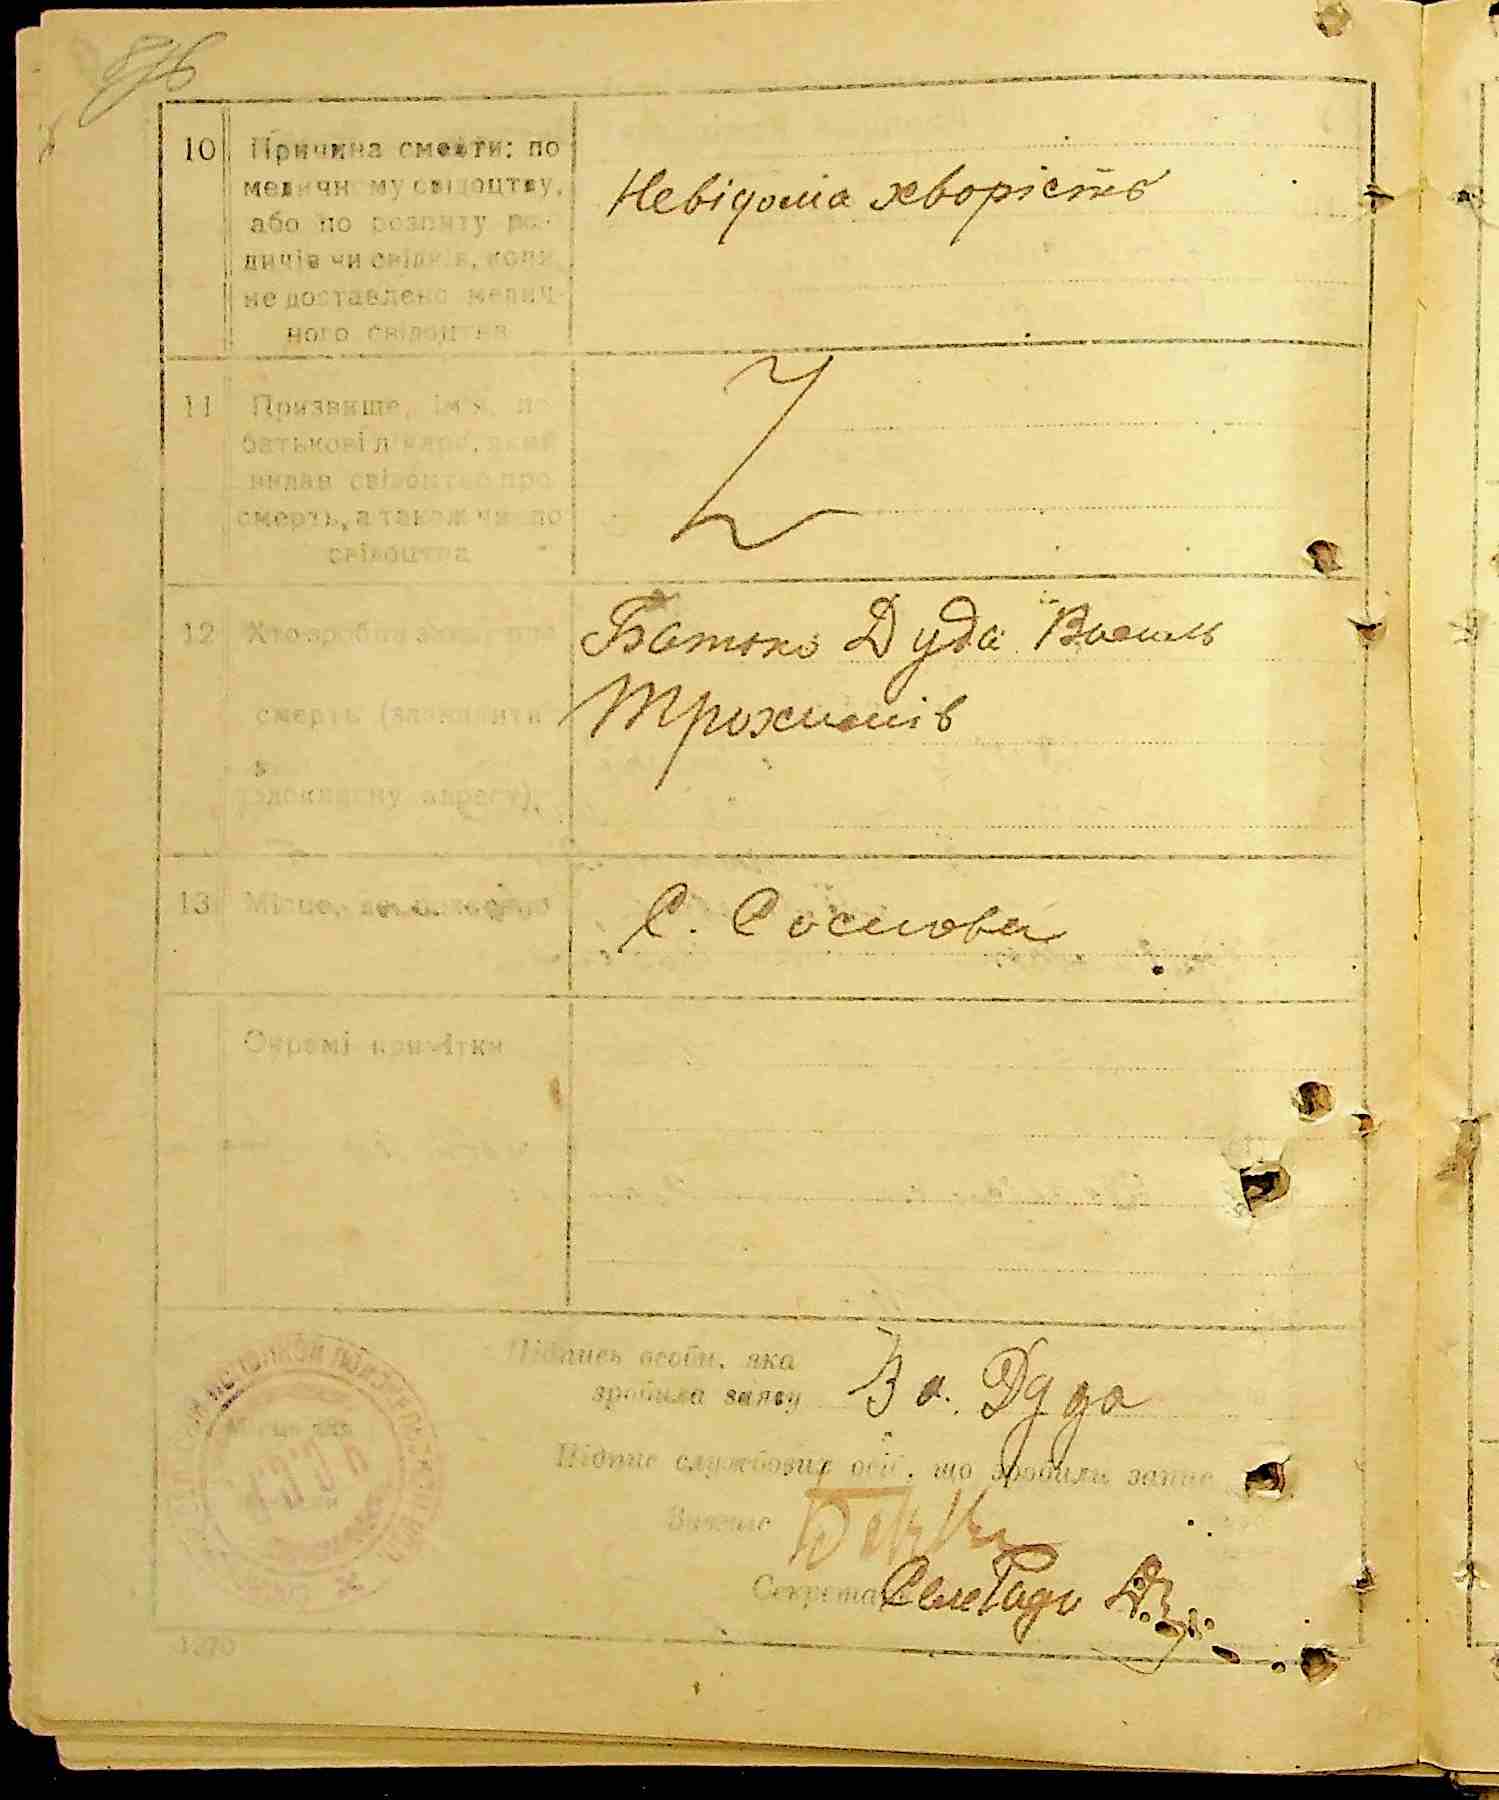 876
10 Причина смерти: по
медичному свідоцтву,
або по розпиту ро-
дичів чи свідків, коли
не доставлено медич-
ного свідоцтва
Невідома хворість
11 Призвище, ім'я, по
батькові лікаря, який
видав свідоцтво про
смерть, а також число
свідоцтва
12 Хто зробив заяву про
смерть (заявника
адресу).
Батько Дуда Василь
Трохимів
13 Місце, де
С. Соснова
Окремі примітки
Підпись особи, яка
зробила заяву За. Дуда
Підпис службових осіб, що зробили запис
Секретар СелеРади